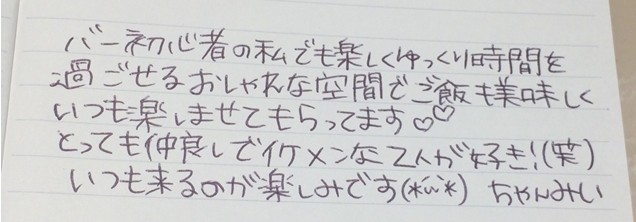 バー初心者の私でも楽しくゆっくり時間を
過ごせるおしゃれな空間でご飯も美味しく
いつも楽しませてもらってます♡♡
とっても仲良しでイケメンな2人が好き!(笑)
いつも来るのが楽しみです(*´ω`*) ちゃんみい